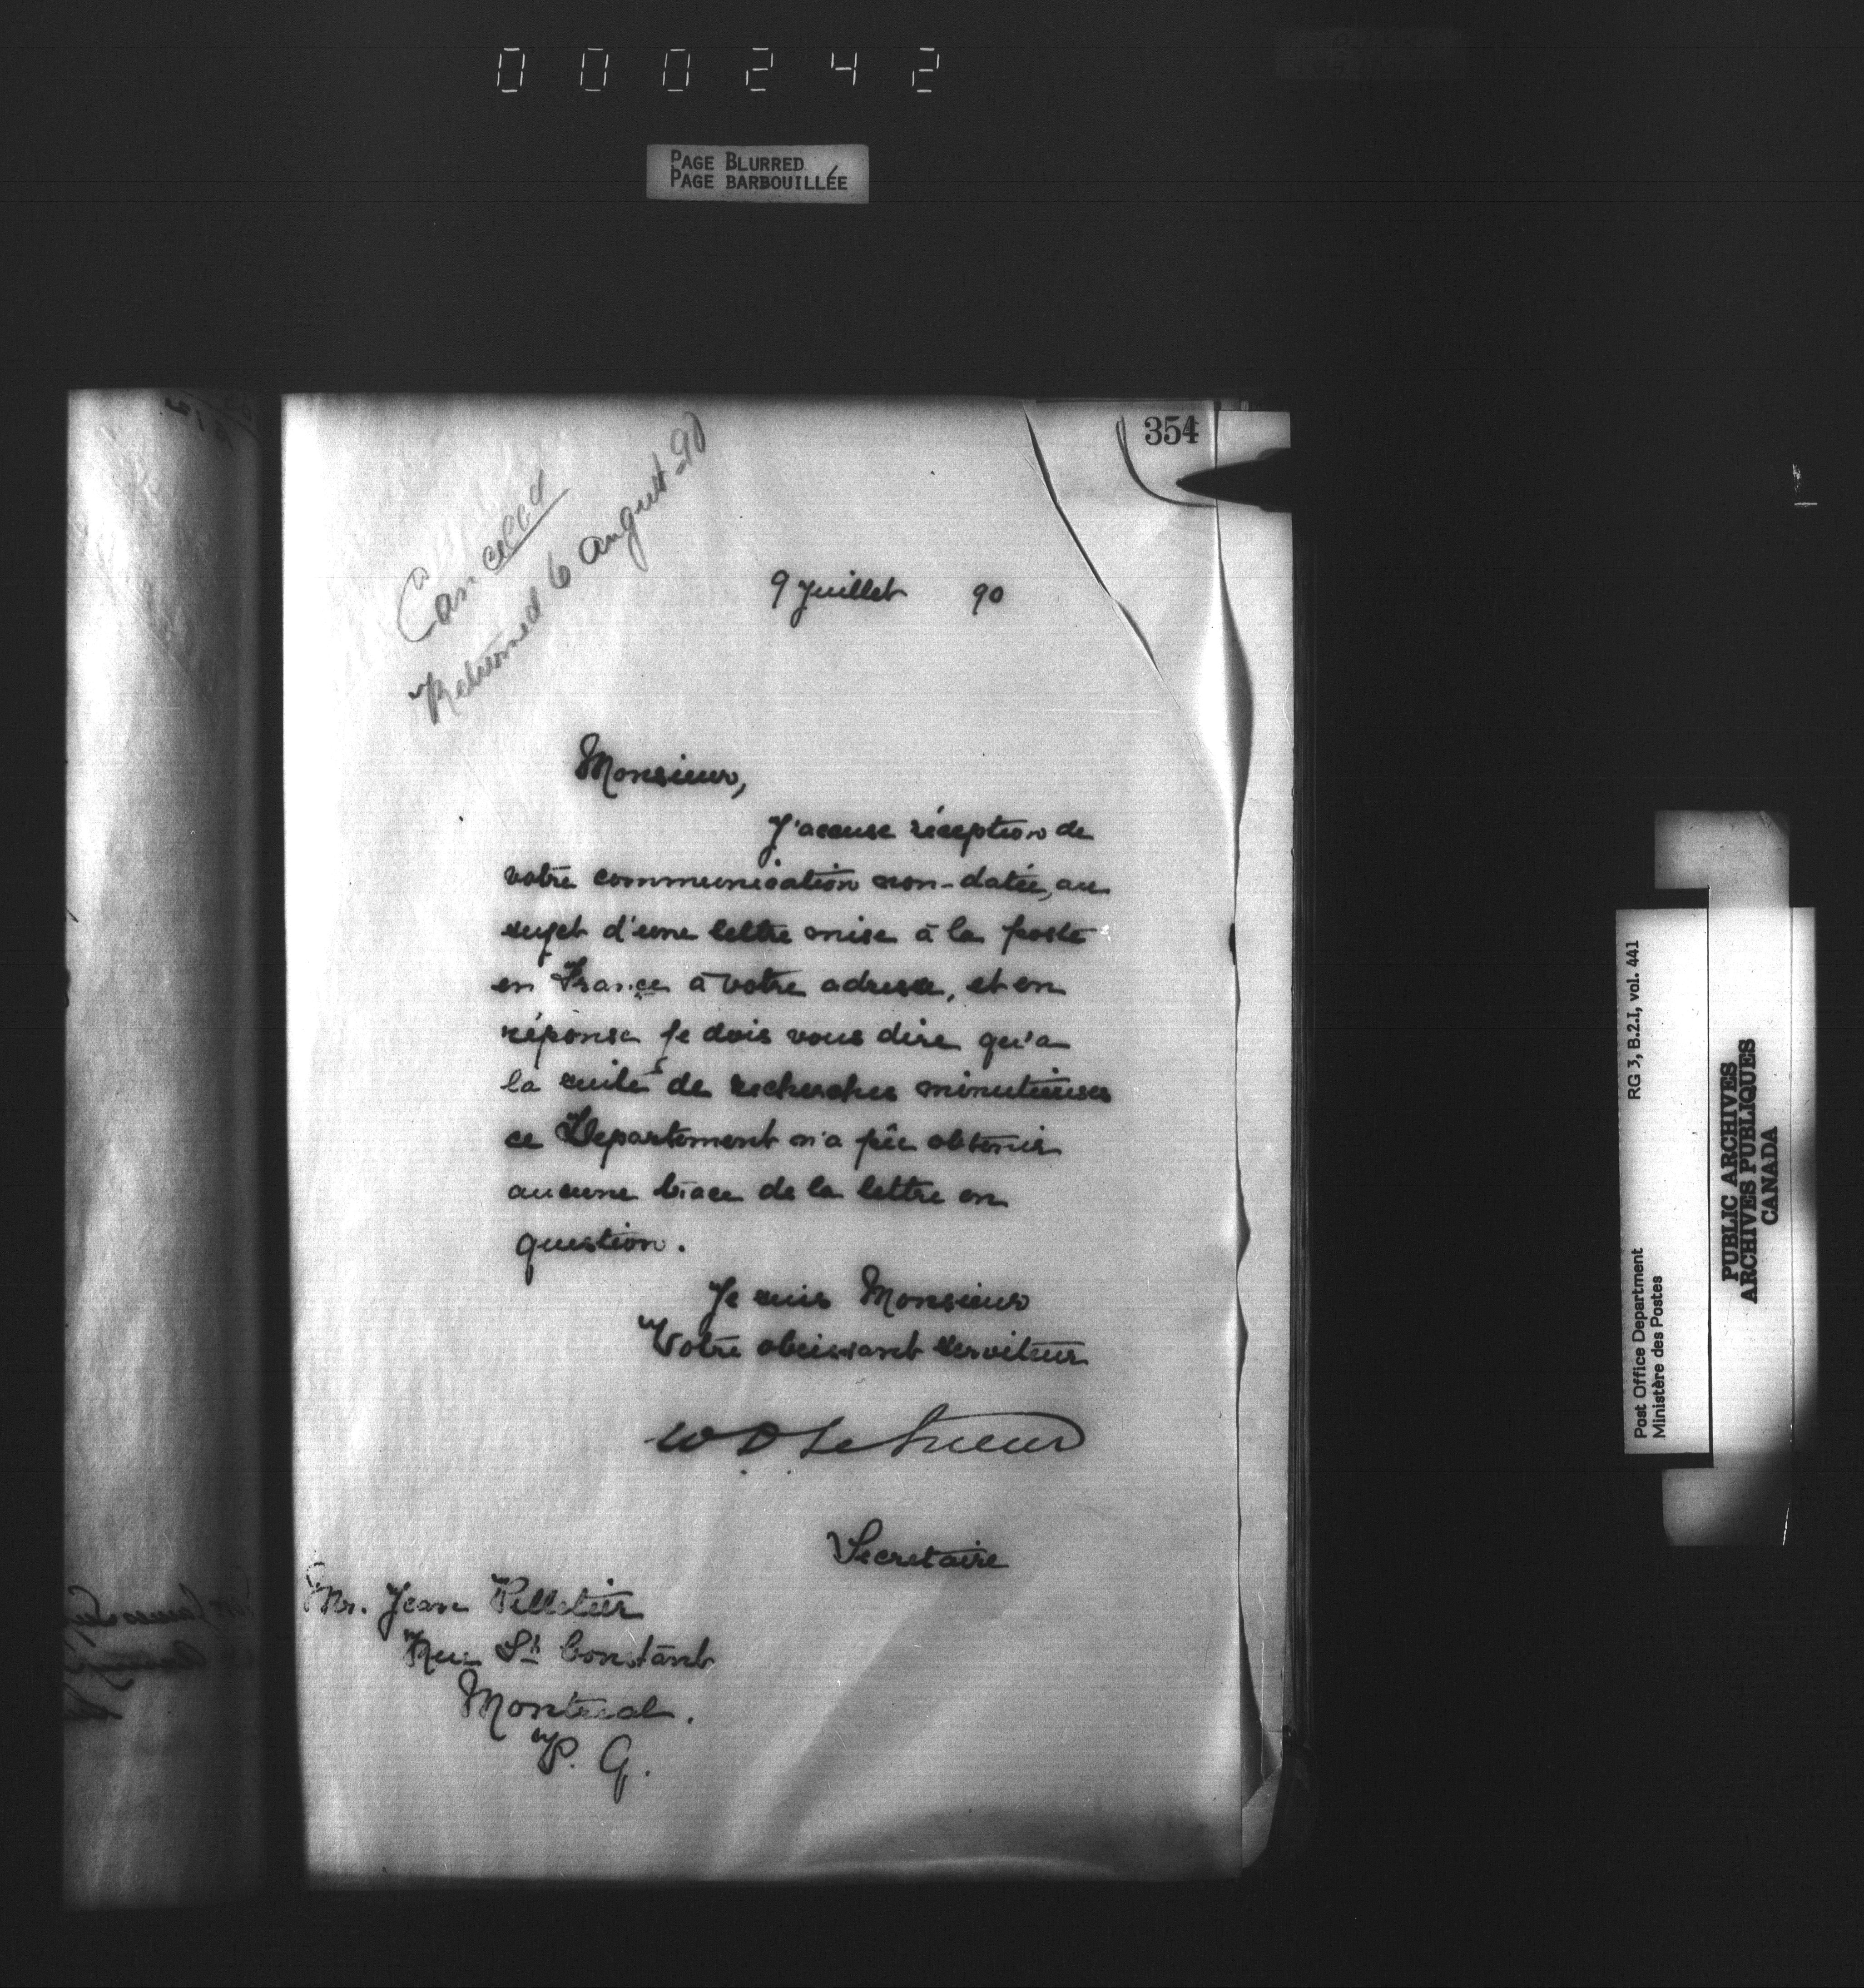 000242
PAGE BLURRED
PAGE BARBOUILLÉE
354
Cancelled
Returned 6 August 90
9 Juillet 90
Monsieur,
J'accuse réception de
votre communication non-datée, au
sujet d'une lettre mise à la poste
en France à votre adresse, et en
réponse je dois vous dire qu'a
la suite de recherches minutieuses
ce Departement n'a pû obtenir
aucune trace de la lettre en
question.
Je suis Monsieur
Votre obeissant serviteur
W D LeSueur
Secretaire
Mr. Jean Pelletier
Rue St Constant
Montreal.
P. Q.
RG 3, B.2.I, vol. 441
Post Office Department
Ministère des Postes
PUBLIC ARCHIVES
ARCHIVES PUBLIQUES
CANADA